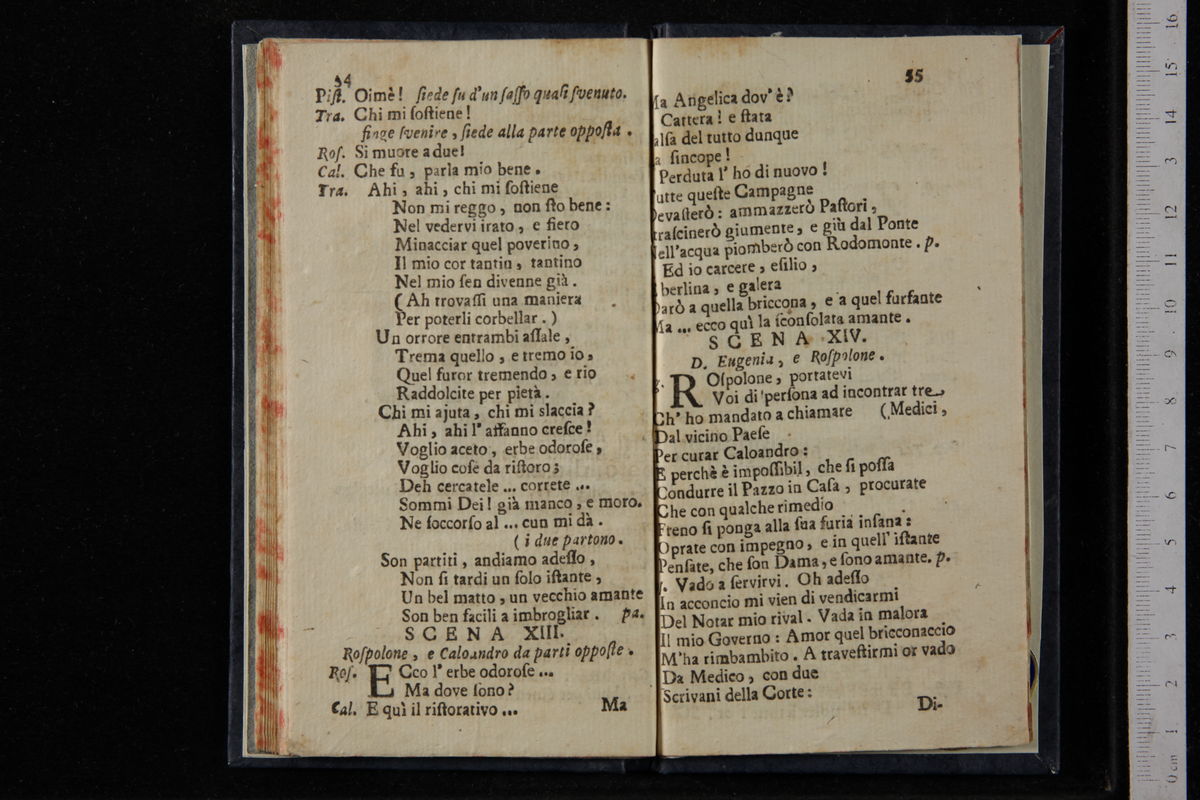 34
Piſt. Oimè! ſiede ſu d'un ſaſſo quaſi ſvenuto.
Tra. Chi mi ſoſtiene!
finge ſvenire, ſiede alla parte oppoſta.
Roſ. Si muore a due!
Cal. Che fu, parla mio bene.
Tra. Ahi, ahi, chi mi ſoſtiene
Non mi reggo, non ſto bene:
Nel vedervi irato, e fiero
Minacciar quel poverino,
Il mio cor tantin, tantino
Nel mio ſen divenne già.
(Ah trovaſſi una maniera
Per poterli corbellar.)
Un orrore entrambi aſſale,
Trema quello, e tremo io,
Quel furor tremendo, e rio
Raddolcite per pietà.
Chi mi ajuta, chi mi slaccia?
Ahi, ahi l'affanno creſce!
Voglio aceto, erbe odoroſe,
Voglio coſe da riſtoro;
Deh cercatele ... correte ...
Sommi Dei! già manco, e moro.
Ne ſoccorſo al ... cun mi dà.
(i due partono.
Son partiti, andiamo adeſſo,
Non ſi tardi un ſolo iſtante,
Un bel matto, un vecchio amante
Son ben facili a imbrogliar. pa.
SCENA XIII.
Roſpolone, e Caloandro da parti oppoſte.
Roſ. ECco l'erbe odoroſe ...
Ma dove ſono?
Cal. E quì il riſtorativo ... Ma
55
Ma Angelica dov'è?
Cattera! e ſtata
alſa del tutto dunque
a ſincope!
Perduta l'hò di nuovo!
utte queſte Campagne
Devaſterò: ammazzerò Paſtori,
traſcinerò giumente, e giù dal Ponte
Nell'acqua piomberò con Rodomonte. p.
Ed io carcere, eſilio,
berlina, e galera
Darò a quella briccona, e a quel furfante
Ma ... ecco quì la ſconſolata amante.
SCENA XIV.
D. Eugenia, e Roſpolone.
ROſpolone, portatevi
Voi di perſona ad incontrar tre
Ch'ho mandato a chiamare (Medici,
Dal vicino Paeſe
Per curar Caloandro:
E perchè è impoſſibil, che ſi poſſa
Condurre il Pazzo in Caſa, procurate
Che con qualche rimedio
Freno ſi ponga alla ſua furia inſana:
Oprate con impegno, e in quell'iſtante
Penſate, che ſon Dama, e ſono amante. p.
ſ. Vado a ſervirvi. Oh adeſſo
In acconcio mi vien di vendicarmi
Del Notar mio rival. Vada in malora
Il mio Governo: Amor quel bricconaccio
M'ha rimbambito. A traveſtirmi or vado
Da Medico, con due
Scrivani della Corte:
Di-